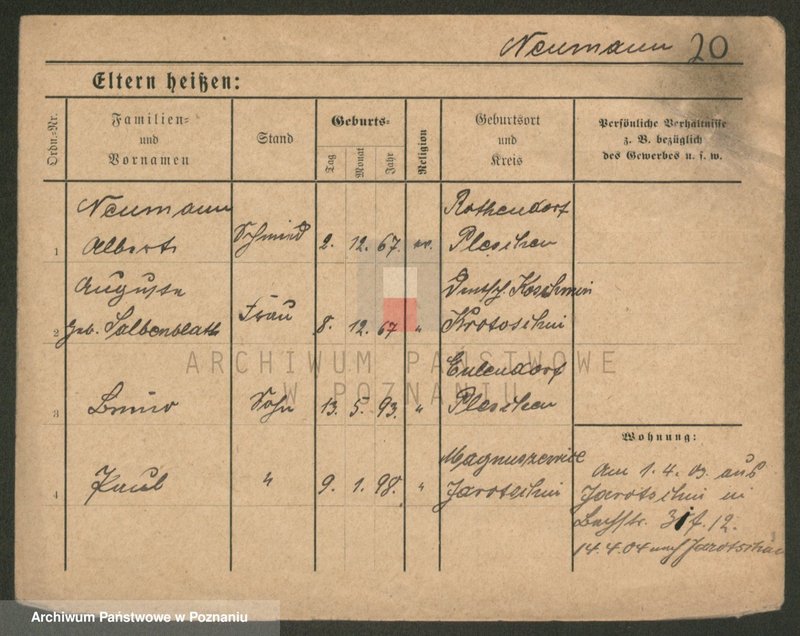 Neumann 20
Eltern heißen:
Ordn.-Nr.
Familien-
und
Vornamen
Stand
Geburts-
Tag
Monat
Jahr
Religion
Geburtsort
und
Kreis
Persönliche Verhältnisse
z. B. bezüglich
des Gewerbes u. s. w.
Neumann Rothendorf
1 Albert Schmied 2. 12. 67. ev. Pleschen
Auguste Deutsch Koschmin
2 geb. Salbenblatt Frau 8. 12. 67 " Krotoschin
Eulendorf
3 Bruno Sohn 13. 5. 93. " Pleschen
Magnuszewice
4 Paul " 9. 1. 98. " Jarotschin
Wohnung:
Am 1.4.03 aus
Jarotschin in
Bachstr.
14.4.04 nach Jarotschin
ARCHIWUM PAŃSTWOWE
W POZNANIU
Archiwum Państwowe w Poznaniu